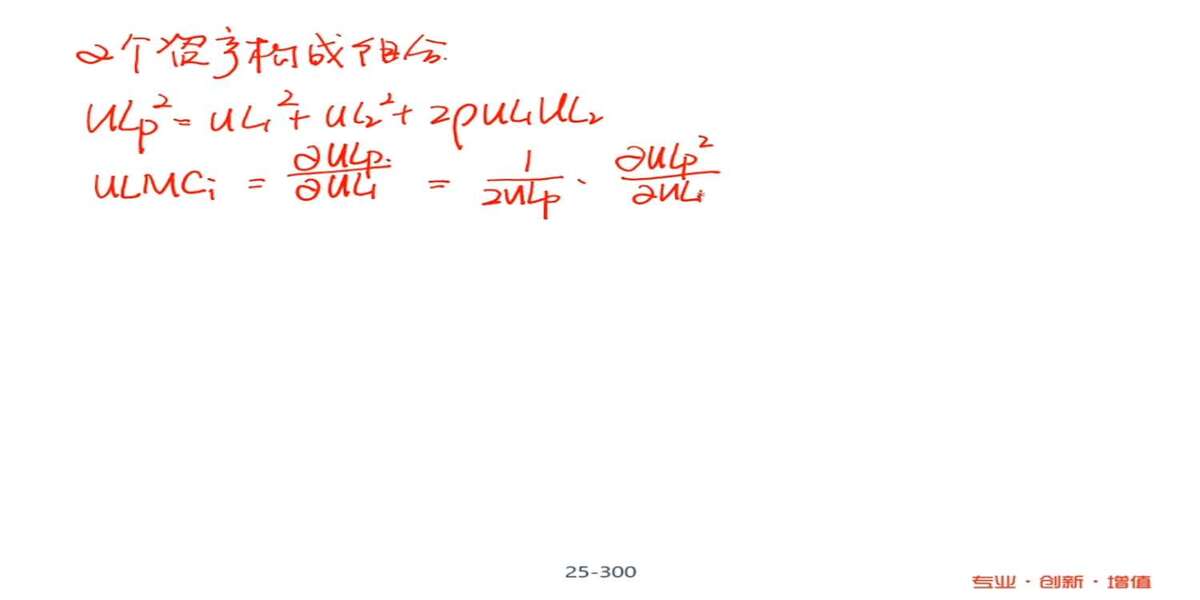 2个资产构成组合.
ULp² = UL₁² + UL₂² + 2ρUL₁UL₂
ULMCi = ∂ULp/∂ULi = 1/2ULp · ∂ULp²/∂ULi
25-300
专业·创新·增值